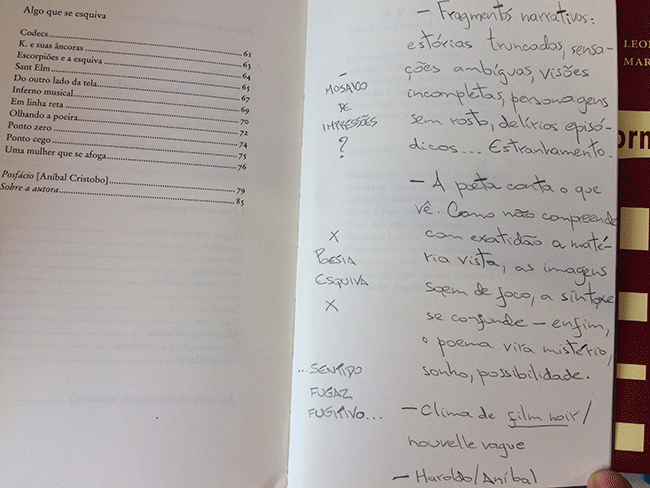 Algo que se esquiva
Codecs.....61
K. e suas âncoras.....63
Escorpiões e a esquiva.....64
Sant Elm.....65
Do outro lado da tela.....67
Inferno musical.....69
Em linha reta.....70
Olhando a poeira.....72
Ponto zero.....74
Ponto cego.....75
Uma mulher que se afoga.....76
Posfácio [Aníbal Cristobo].....79
Sobre a autora.....85
– Fragmentos narrativos:
estórias truncadas, sensa-
ções ambíguas, visões
incompletas, personagens
sem rosto, delírios episó-
dicos... Estranhamento.
– A poeta conta o que
vê. Como não compreende
com exatidão a maté-
ria vista, as imagens
saem de foco, a sintaxe
se confunde – enfim,
o poema vira mistério,
sonho, possibilidade.
– Clima de film noir/
nouvelle vague
– Haroldo/Aníbal
–
MOSAICO
DE
IMPRESSÕES
?
X
POESIA
ESQUIVA
X
...SENTIDO
FUGAZ
FUGITIVO...
LEO
MAR
orm